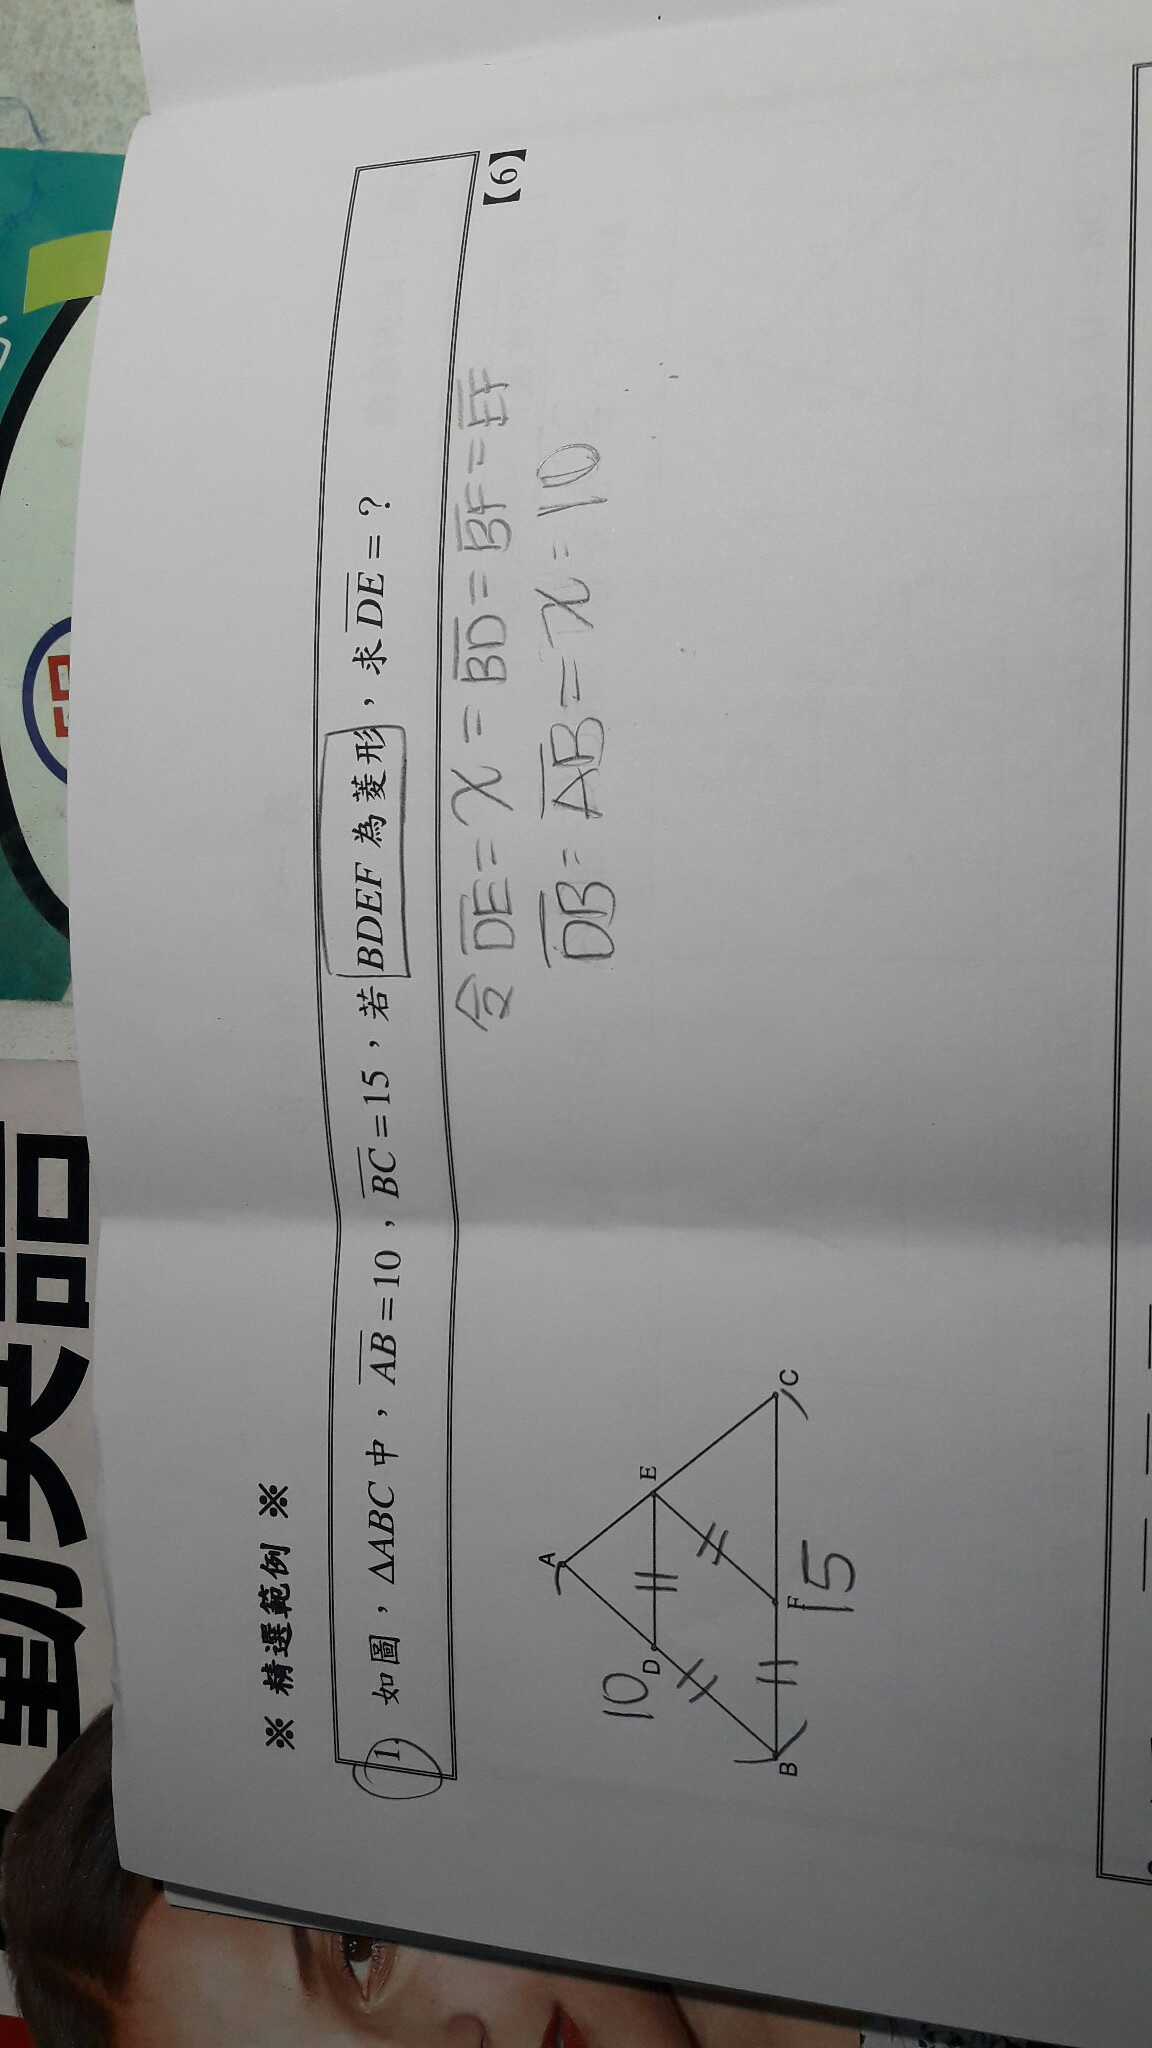 ※ 精選範例 ※
1. 如圖，ΔABC中，AB=10，BC=15，若BDEF為菱形，求DE=？
【6】
令DE=x=BD=BF=EF
DB=AB=x=10
A
10
D
E
B
F
C
15